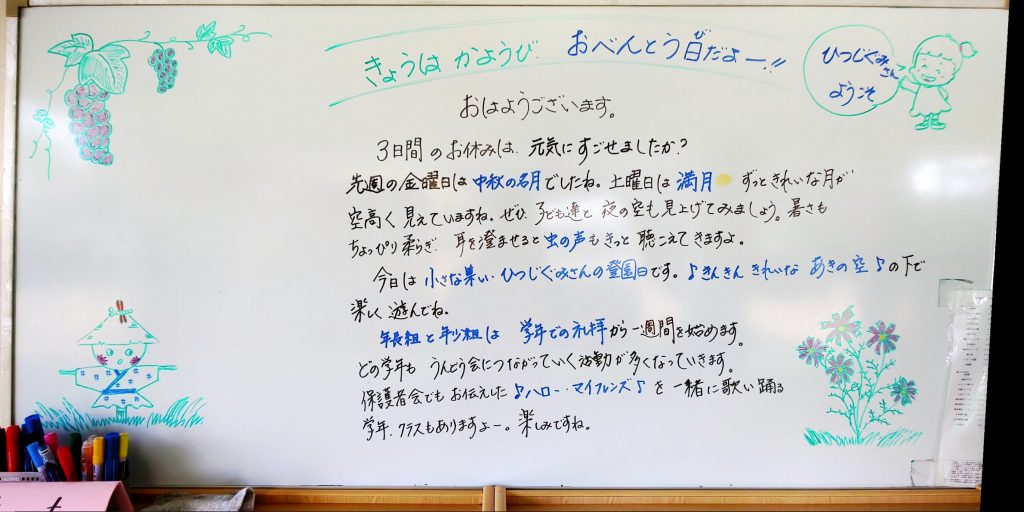 きょうは かようび おべんとう日だよー!!
び
ひつじぐみさん
ようこそ
おはようございます。
3日間のお休みは、元気にすごせましたか?
先週の金曜日は中秋の名月でしたね。土曜日は満月 ずっときれいな月が
空高く見えていますね。ぜひ、子ども達と夜の空も見上げてみましょう。暑さも
ちょっぴり柔らぎ、耳を澄ませると虫の声もきっと聴こえてきますよ。
今日は小さな集い・ひつじぐみさんの登園日です。♪きんきん きれいな あきの空♪の下で
楽しく遊んでね。
年長組と年少組は 学年での礼拝から一週間を始めます。
どの学年も うんどう会につながっていく活動が多くなっていきます。
保護者会でもお伝えした♪ハロー・マイフレンズ♪を一緒に歌い踊る
学年、クラスもありますよー。楽しみですね。